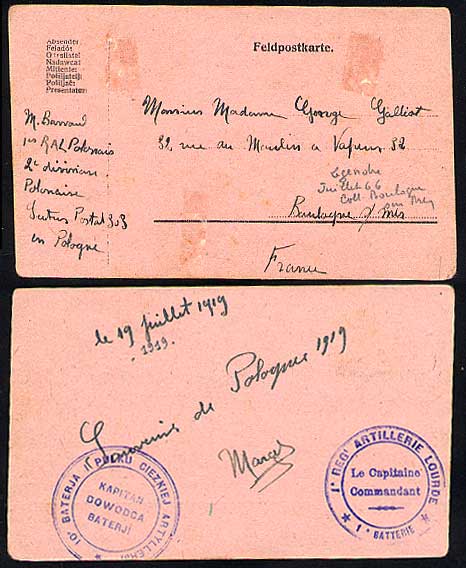 Absender
Feladó
Odesílatel
Nadawca
Mittente
Pošiljatelj
Pošiljač
Presentator
Feldpostkarte.
M. Barraud
1er RAL Polonais
2e division
Polonaise
Secteur Postal 303
en Pologne
Monsieur Madame George Galliot
32, rue du Moulin a Vapeur 32
Juillet 66
Coll. Boulogne
sur Mer
Boulogne s/ Mer
France
le 19 juillet 1919
1919.
Souvenir de Pologne 1919
Marcel
10a BATERJA 1 PUŁKU CIEZKIEJ ARTYLLERJI
KAPITAN
DOWODCA
BATERJI
1er REGt ARTILLERIE LOURDE
Le Capitaine
Commandant
1e BATTERIE